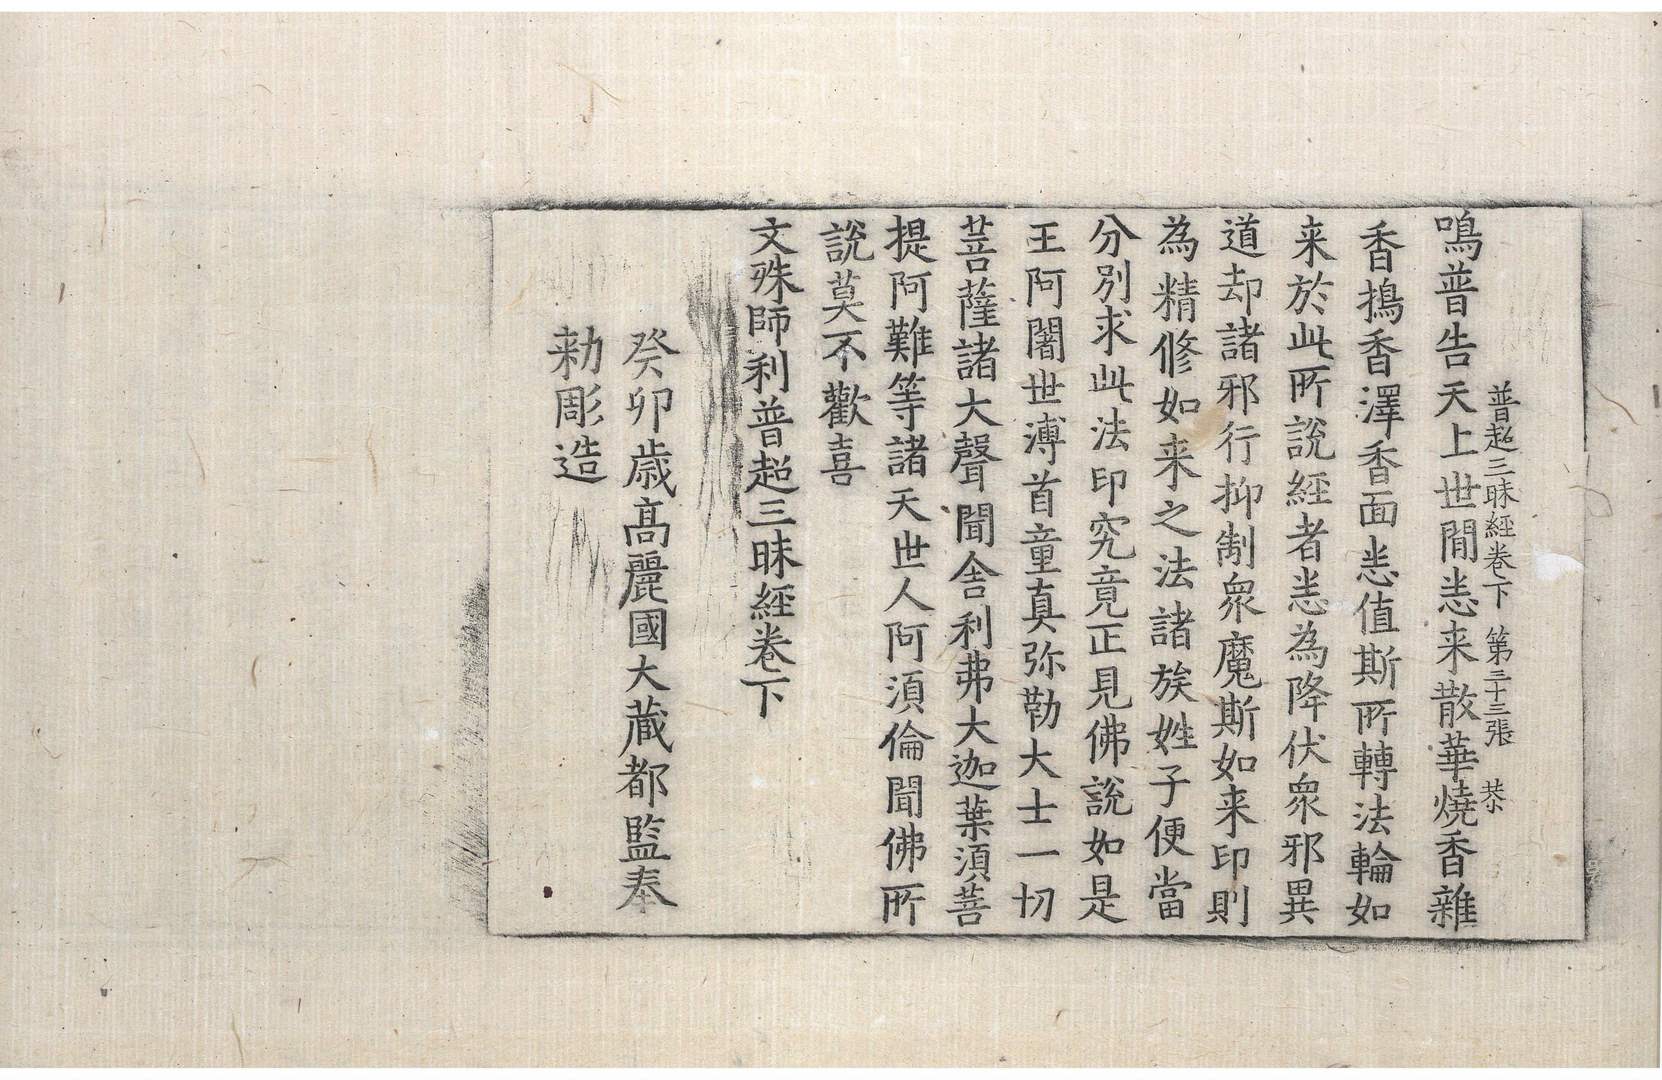 普超三昧經卷下　第三十三張　恭
鳴普告天上世閒悉来散華燒香雜
香擣香澤香面悉值斯所轉法輪如
来於此所說經者悉為降伏衆邪異
道却諸邪行抑制衆魔斯如来印則
為精修如来之法諸族姓子便當
分別求此法印究竟正見佛說如是
王阿闍世溥首童真弥勒大士一切
菩薩諸大聲聞舍利弗大迦葉須菩
提阿難等諸天世人阿須倫聞佛所
說莫不歡喜
文殊師利普超三昧經卷下
癸卯歲高麗國大藏都監奉
勅彫造